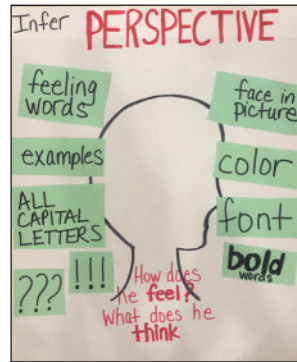 Infer PERSPECTIVE
feeling
words
examples
ALL
CAPITAL
LETTERS
???
!!!
face in
picture
color
font
bold
words
How does
he feel?
What does he
think